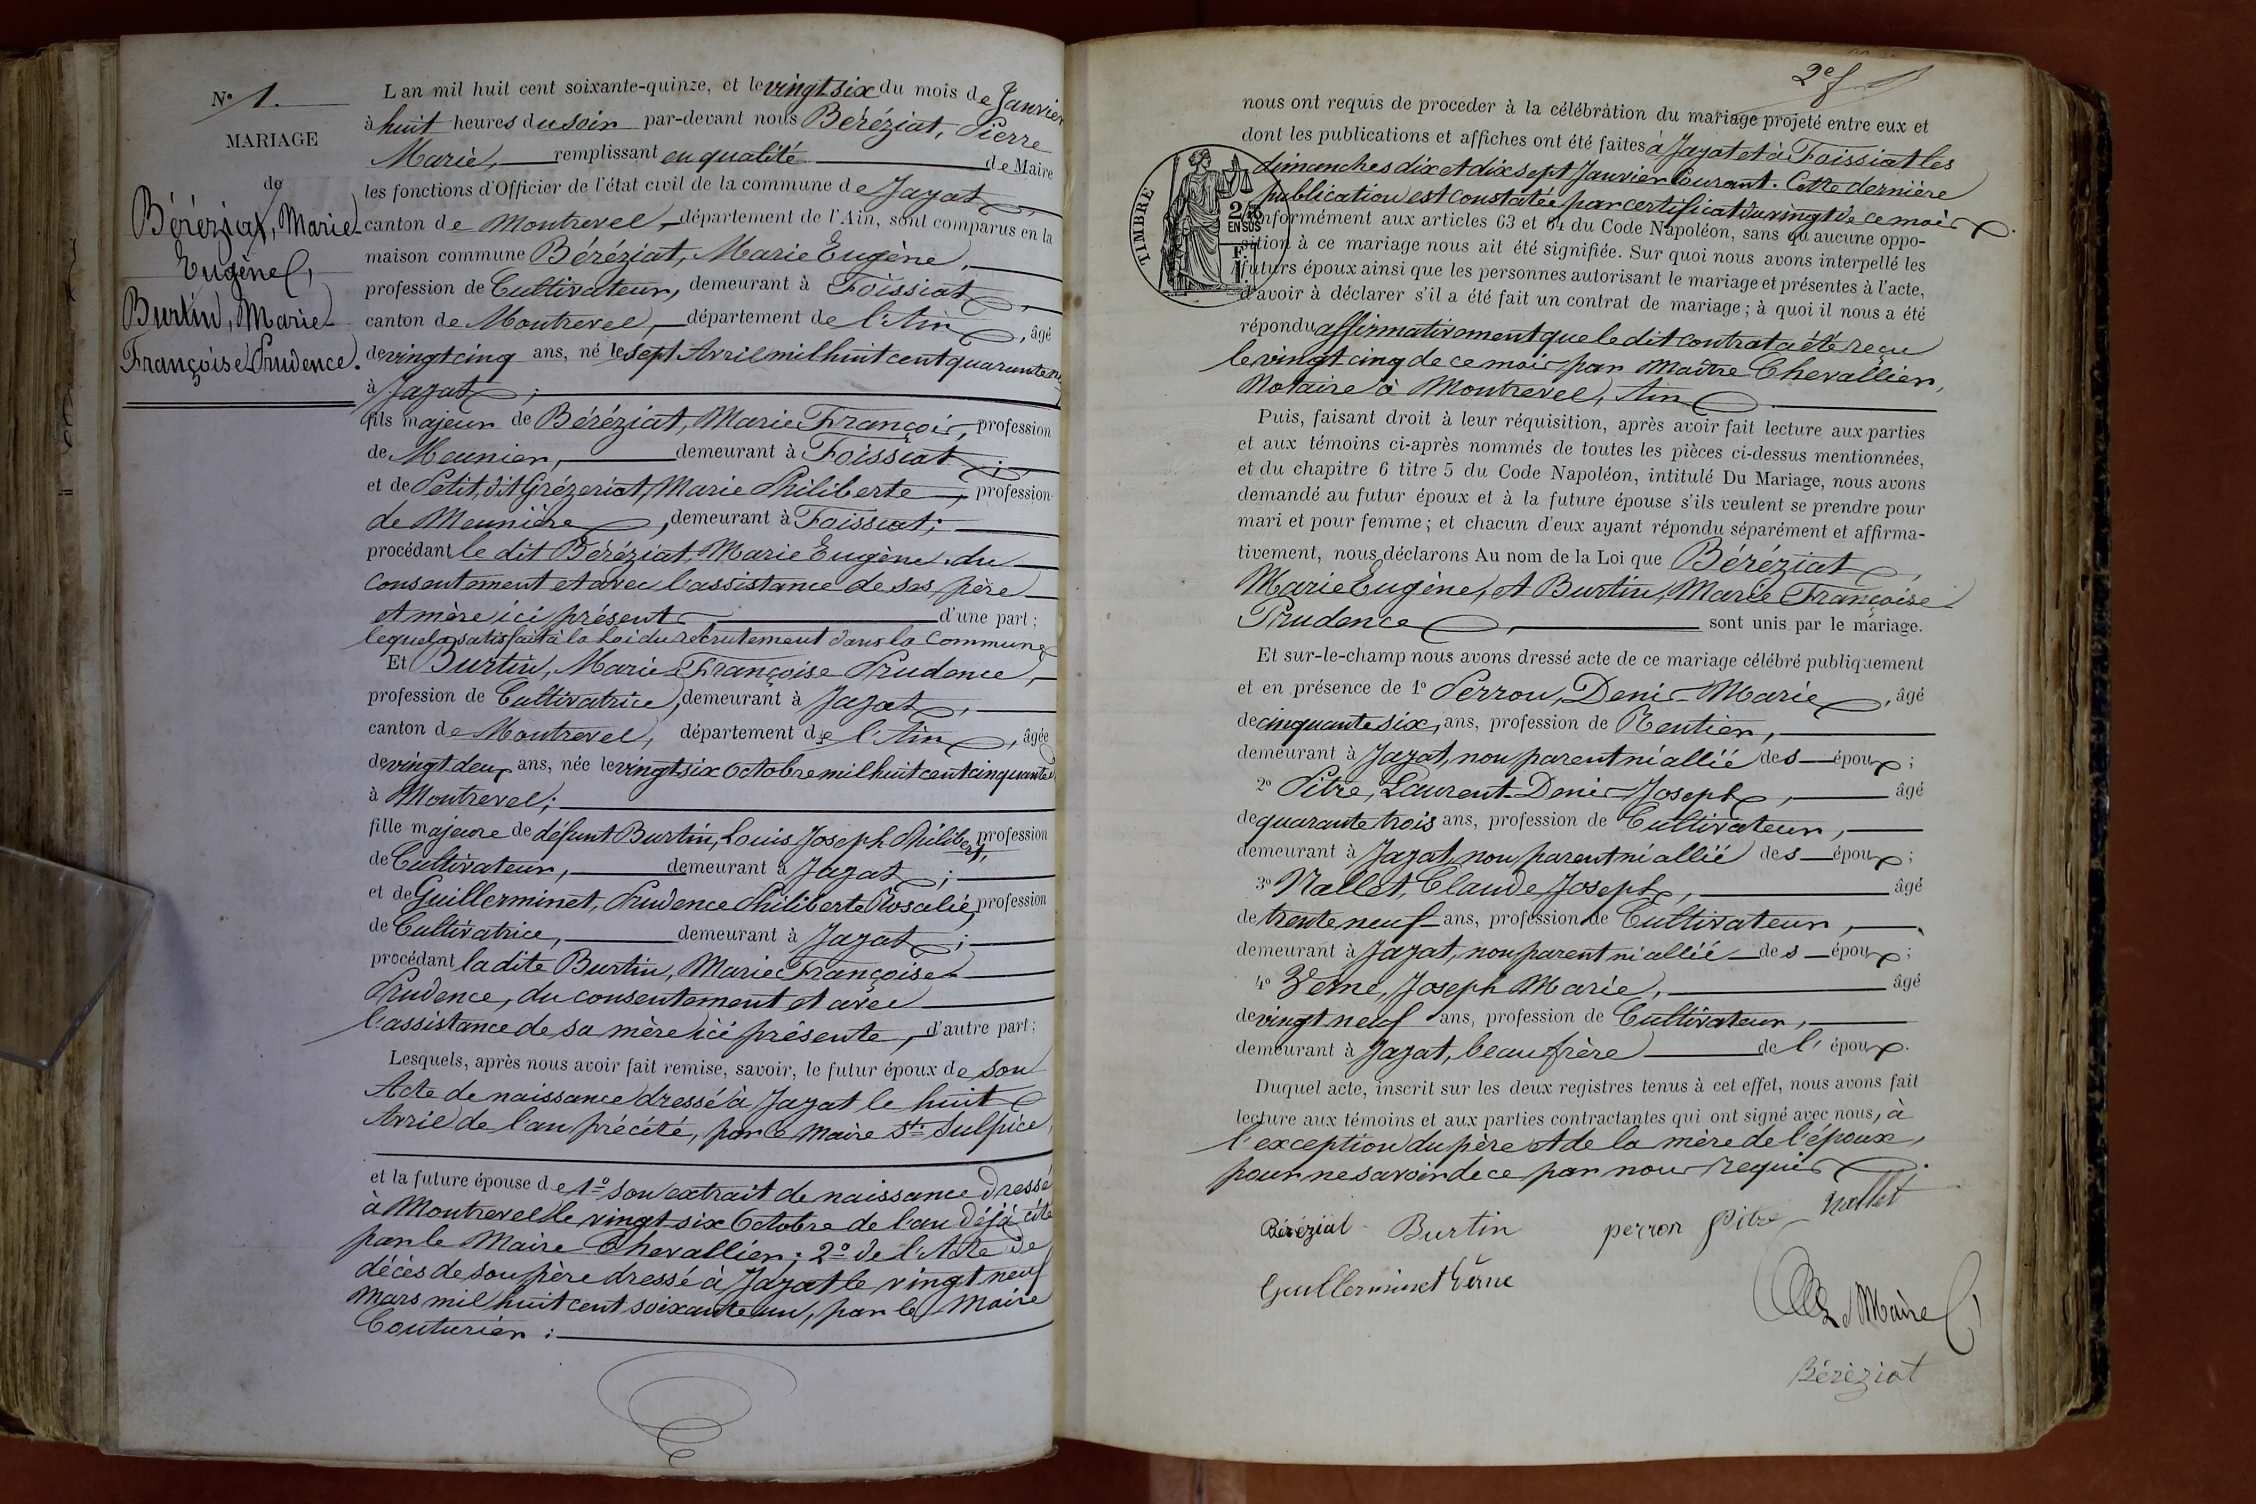 N° 1.
MARIAGE
de
Béréziat, Marie
Eugène
Burtin, Marie
Françoise Prudence.
L'an mil huit cent soixante-quinze, et le vingt six du mois de Janvier
à huit heures du soir par-devant nous Béréziat, Pierre
Marie, remplissant en qualité de Maire
les fonctions d'Officier de l'état civil de la commune de Jayat,
canton de Montrevel, département de l'Ain, sont comparus en la
maison commune Béréziat, Marie Eugène,
profession de Cultivateur, demeurant à Foissiat,
canton de Montrevel, département de l'Ain, âgé
de vingt cinq ans, né le sept Avril mil huit cent quarante
à Jayat;
fils majeur de Béréziat, Marie François, profession
de Meunier, demeurant à Foissiat;
et de Petit, dit Grézeriat, Marie Philiberte, profession
de Meunière, demeurant à Foissiat;
procédant le dit Béréziat Marie Eugène, du
consentement et avec l'assistance de ses père
et mère ici présents d'une part;
lequel a satisfait à la loi du recrutement dans la Commune
Et Burtin, Marie Françoise Prudence,
profession de Cultivatrice, demeurant à Jayat,
canton de Montrevel, département de l'Ain, âgée
de vingt deux ans, née le vingt six Octobre mil huit cent cinquante
à Montrevel;
fille majeure de défunt Burtin, Louis Joseph Philibert, profession
de Cultivateur, demeurant à Jayat;
et de Guillerminet, Prudence Philiberte Rosalie, profession
de Cultivatrice, demeurant à Jayat;
procédant la dite Burtin, Marie Françoise
Prudence, du consentement et avec
l'assistance de sa mère ici présente, d'autre part;
Lesquels, après nous avoir fait remise, savoir, le futur époux de son
Acte de naissance dressé à Jayat le huit
Avril de l'an précité, par le Maire St Sulpice,
et la future épouse de 1° son extrait de naissance dressé
à Montrevel le vingt six Octobre de l'an déjà cité
par le Maire Chevallier; 2° de l'Acte de
décès de son père dressé à Jayat le vingt neuf
Mars mil huit cent soixante un, par le Maire
Couturier;
2e f
nous ont requis de procéder à la célébration du mariage projeté entre eux et
dont les publications et affiches ont été faites à Jayat et à Foissiat les
dimanches dix et dix sept Janvier courant. Cette dernière
publication est constatée par certificat du vingt de ce mois
conformément aux articles 63 et 64 du Code Napoléon, sans qu'aucune oppo-
sition à ce mariage nous ait été signifiée. Sur quoi nous avons interpellé les
futurs époux ainsi que les personnes autorisant le mariage et présentes à l'acte,
d'avoir à déclarer s'il a été fait un contrat de mariage; à quoi il nous a été
répondu affirmativement que le dit contrat a été reçu
le vingt cinq de ce mois par Maître Chevallier,
Notaire à Montrevel, Ain
TIMBRE
2/10
EN SUS
F.
Puis, faisant droit à leur réquisition, après avoir fait lecture aux parties
et aux témoins ci-après nommés de toutes les pièces ci-dessus mentionnées,
et du chapitre 6 titre 5 du Code Napoléon, intitulé Du Mariage, nous avons
demandé au futur époux et à la future épouse s'ils veulent se prendre pour
mari et pour femme; et chacun d'eux ayant répondu séparément et affirma-
tivement, nous déclarons Au nom de la Loi que Béréziat,
Marie Eugène, et Burtin, Marie Françoise
Prudence, sont unis par le mariage.
Et sur-le-champ nous avons dressé acte de ce mariage célébré publiquement
et en présence de 1° Perron, Denis Marie, âgé
de cinquante six, ans, profession de Rentier,
demeurant à Jayat, non parent ni allié des époux;
2° Pitre, Laurent Denis Joseph, âgé
de quarante trois ans, profession de Cultivateur,
demeurant à Jayat, non parent ni allié des époux;
3° Nallet, Claude Joseph, âgé
de trente neuf ans, profession de Cultivateur,
demeurant à Jayat, non parent ni allié des époux;
4° Verne, Joseph Marie, âgé
de vingt neuf ans, profession de Cultivateur,
demeurant à Jayat, beau frère de l'époux.
Duquel acte, inscrit sur les deux registres tenus à cet effet, nous avons fait
lecture aux témoins et aux parties contractantes qui ont signé avec nous, à
l'exception du père et de la mère de l'époux,
pour ne savoir de ce par nous requis.
Béréziat Burtin perron Pitre Nallet
Guillerminet Verne
Le Maire
Béréziat